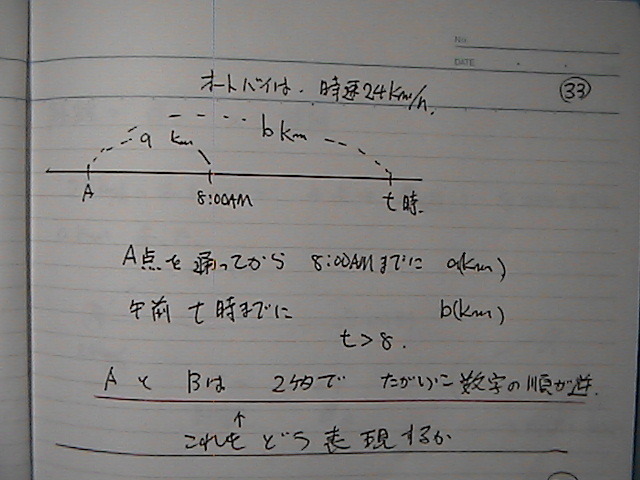 No.
DATE
オートバイは、時速24km/h.
33
a km
b km
A
8:00AM
t時.
A点を通ってから 8:00AMまでに a(km)
午前 t時までに b(km)
t>8.
AとBは 2ケタで たがいに数字の順が逆.
↑
これをどう表現するか